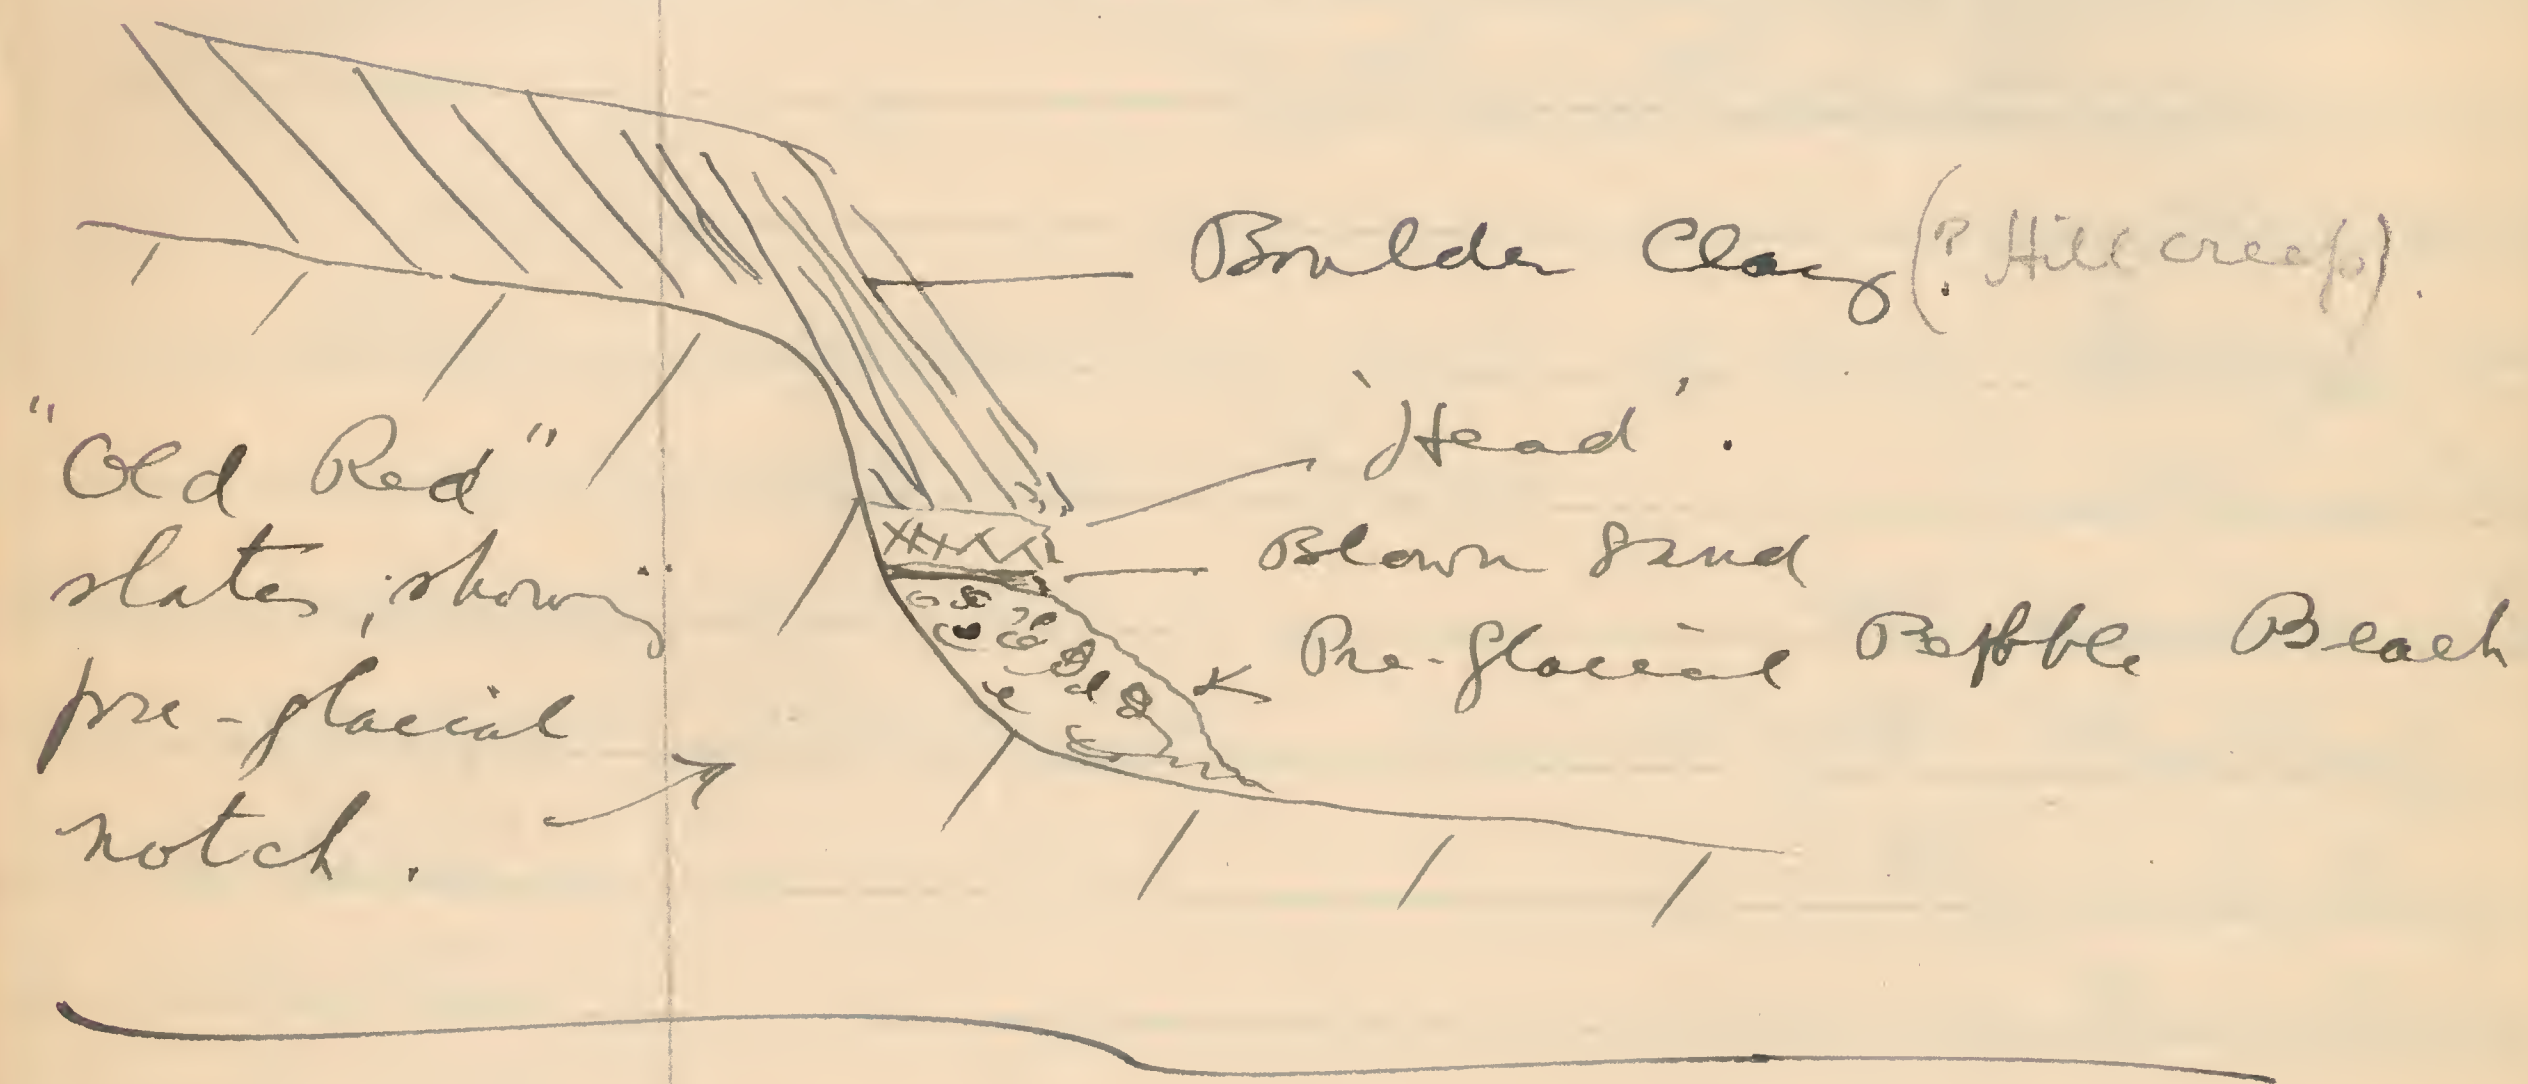 Boulder Clay (? Hill creep).
'Head'.
Blown Sand
Pre-glacial Pebble Beach
"Old Red"
slates, showing
pre-glacial
notch.